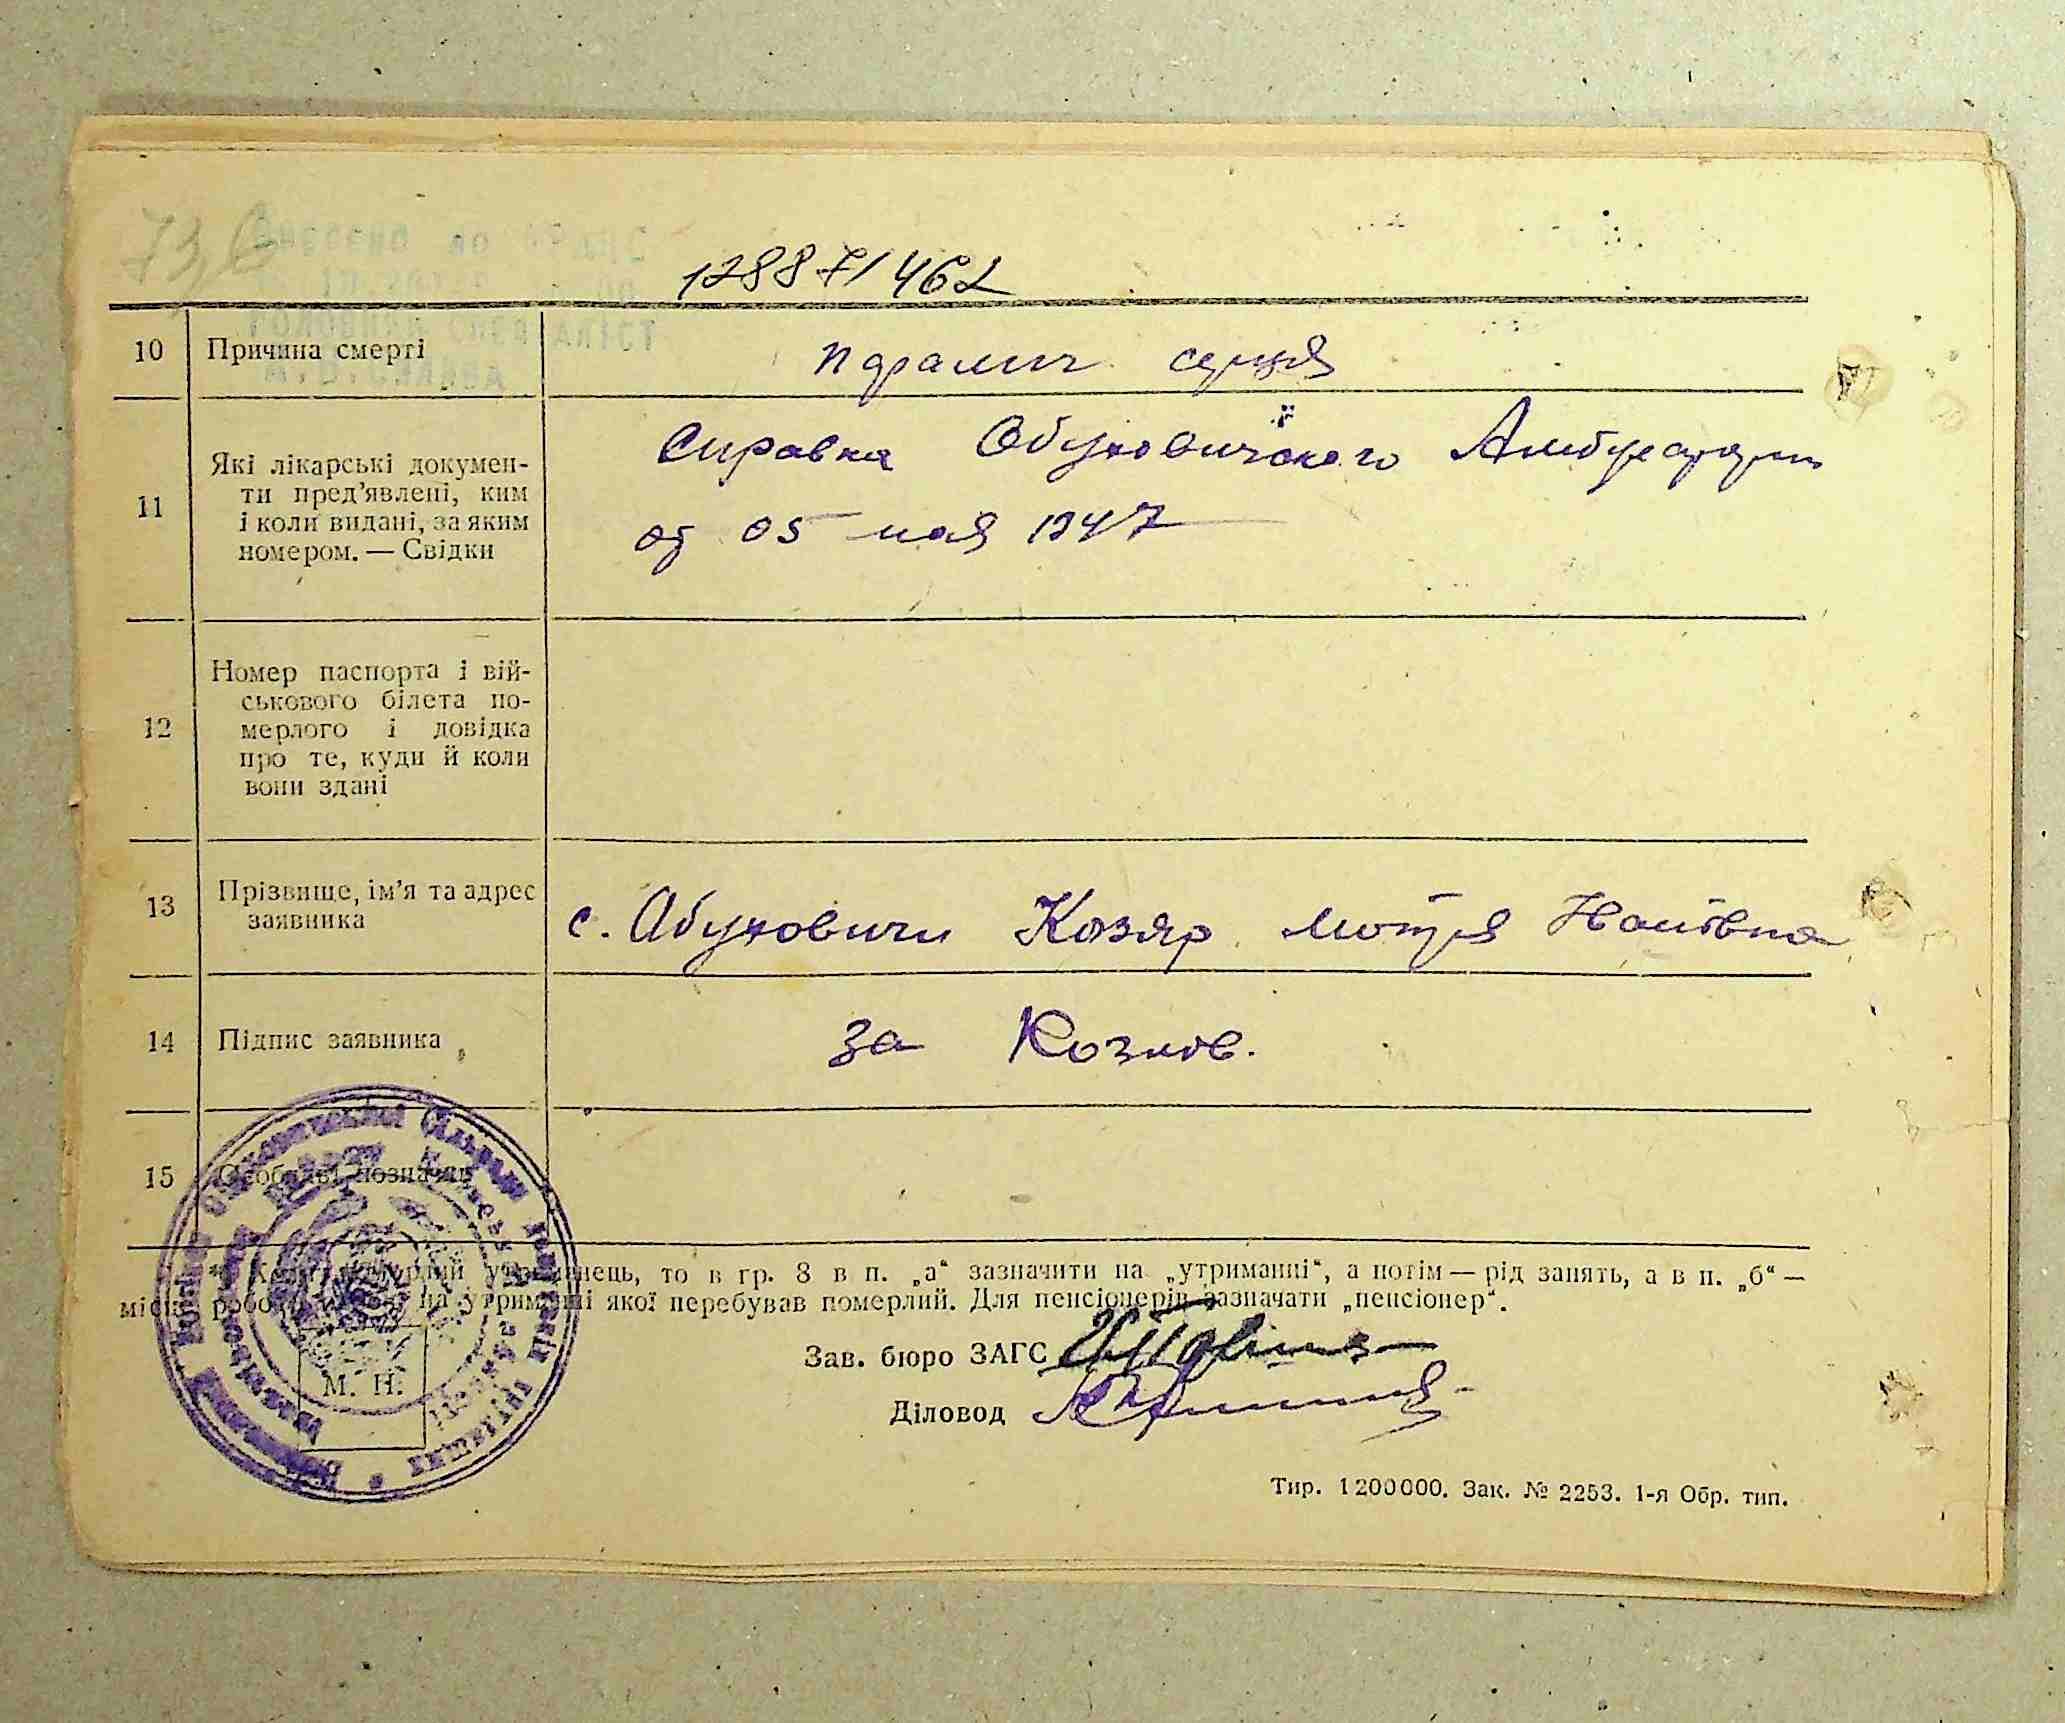 1288 7/462
10 Причина смерті паралич серця
11 Які лікарські докумен-
ти пред’явлені, ким
і коли видані, за яким
номером. — Свідки
Справка Обуховичского
от 05 мая 1947
12 Номер паспорта і вій-
ськового білета по-
мерлого і довідка
про те, куди й коли
вони здані
13 Прізвище, ім’я та адрес
заявника
с. Абуховичи Козяр Мотря
14 Підпис заявника за
15 Особливі позначки
то в гр. 8 в п. „а“ зазначити на „утриманні“, а потім — рід занять, а в п. „б“ —
на утриманні якої перебував померлий. Для пенсіонерів зазначати „пенсіонер“.
Зав. бюро ЗАГС
Діловод
М. П.
Тир. 1200000. Зак. № 2253. 1-я Обр. тип.